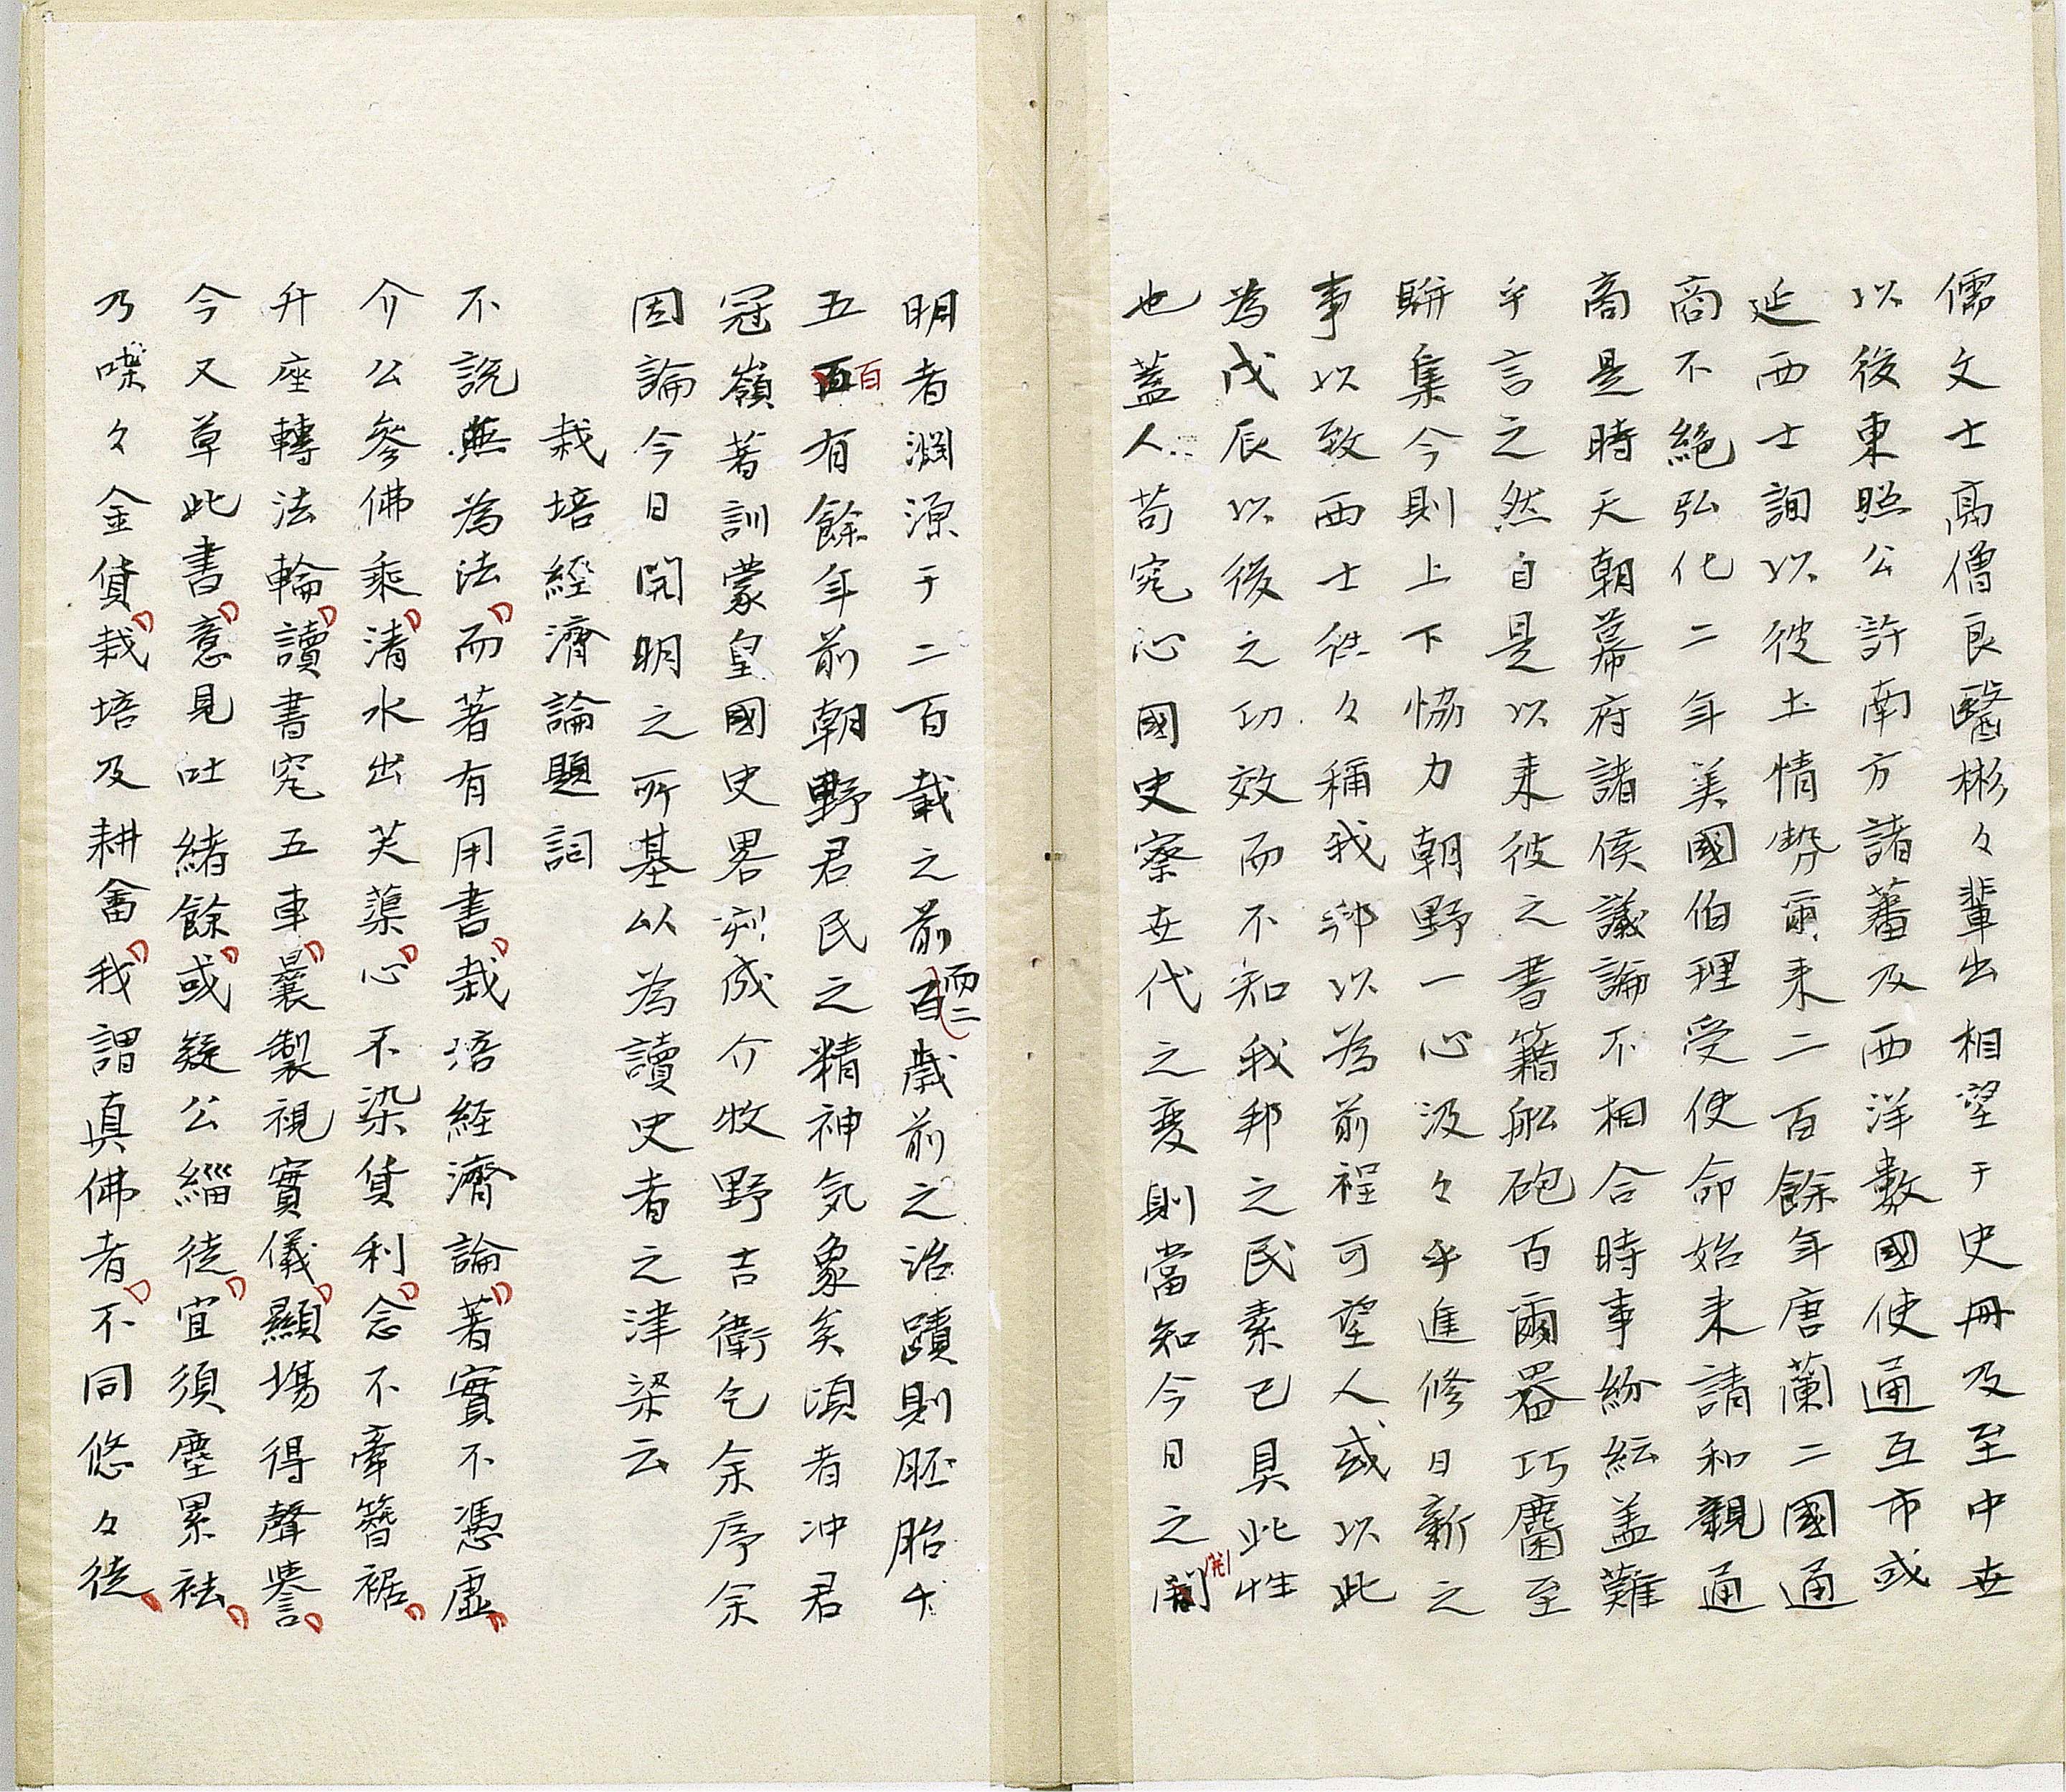 儒文士高僧良醫彬々輩出相望于史冊及至中世
以後東照公許南方諸蕃及西洋數國使通互市或
延西士詢以彼土情勢爾来二百餘年唐蘭二國通
商不絶弘化二年美國伯理受使命始来請和親通
商是時天朝幕府諸侯議論不相合時事紛紜盖難
乎言之然自是以来彼之書籍舩砲百爾器巧麕至
駢集今則上下恊力朝野一心汲々乎進修日新之
事以致西士徃々稱我邦以為前程可望人或以此
為戊辰以後之功效而不知我邦之民素已具此性
也蓋人苟究心國史察世代之変則當知今日之開
明者淵源于二百載之前而二百歳前之治蹟則胚胎乎
五百有餘年前朝野君民之精神気象矣頃者冲君
冠嶺著訓蒙皇國史畧刻成介牧野吉衛乞余序余
因論今日開明之所基以為讀史者之津梁云
栽培經濟論題詞
不説無為法而著有用書栽培経濟論著實不憑虛
介公參佛乘清水出芙蕖心不染貨利念不牽簪裾
升座轉法輪讀書究五車曩製視實儀顯場得聲譽
今又草此書意見吐緒餘或疑公緇徒宜須塵累袪
乃喋々金貨栽培及耕畬我謂真佛者不同悠々徒